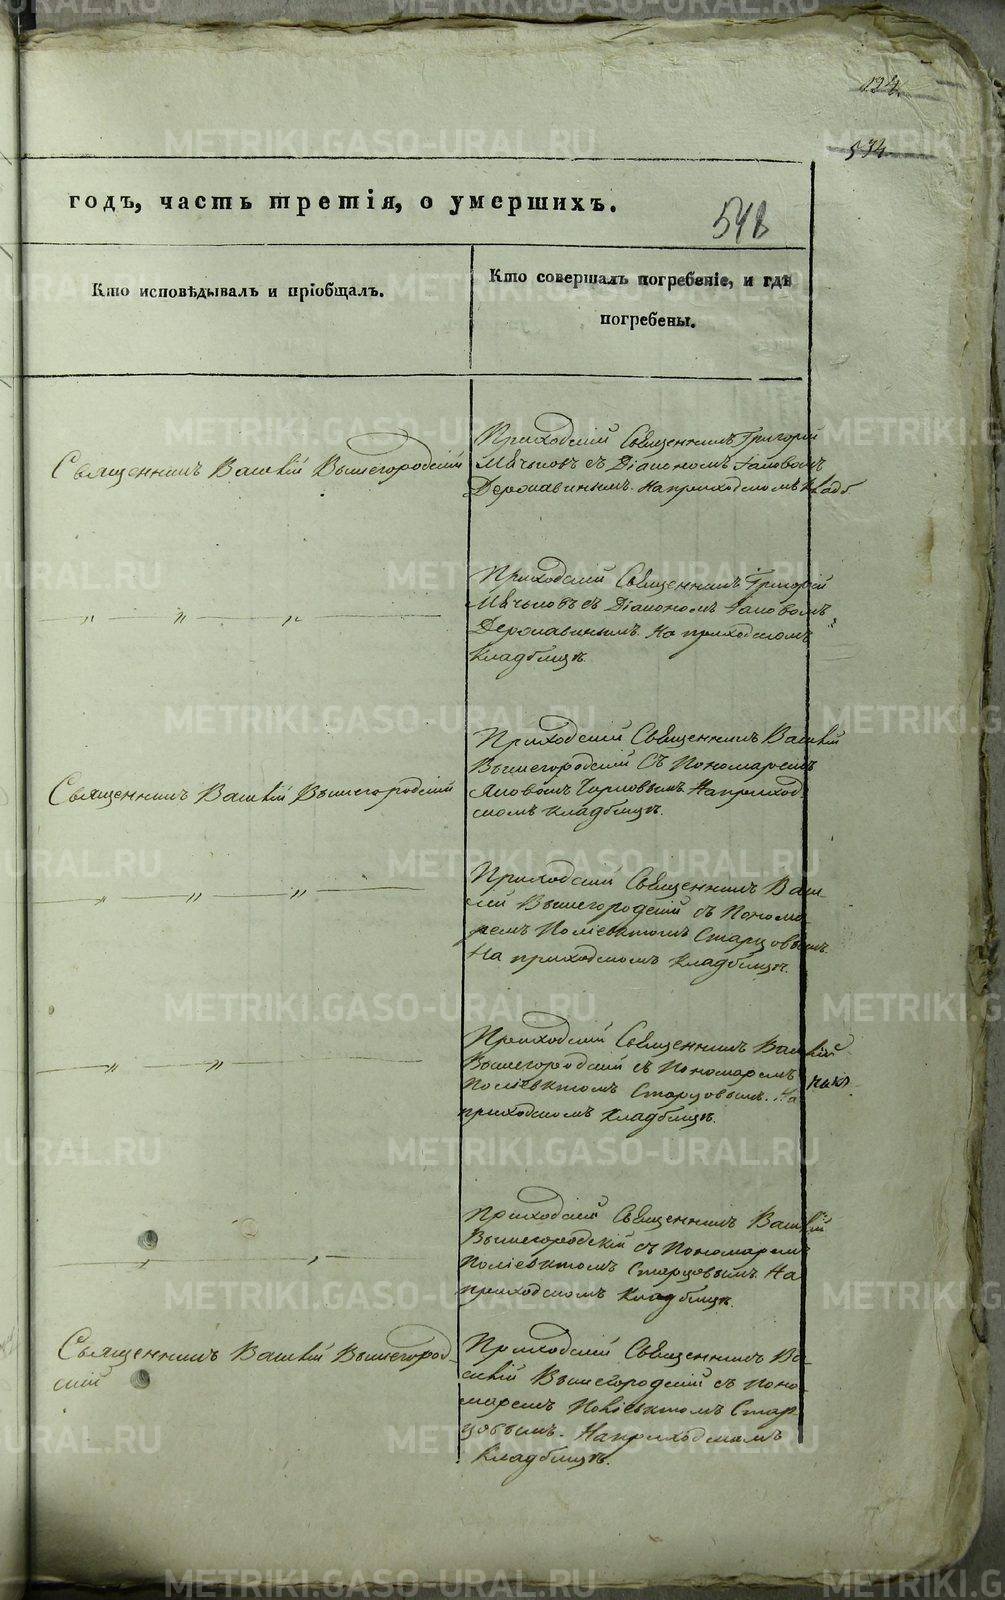 124.
534
годъ, часть третія, о умершихъ.
548
Кто исповѣдывалъ и пріобщалъ.
Кто совершалъ погребеніе, и гдѣ
погребены.
Священникъ Василій Вышегородскій
Приходскій Священникъ Григорій
Мячковъ съ Діакономъ Іаковомъ
Державинымъ. На приходскомъ Кладб
" " "
Приходскій Священникъ Григорій
Мячковъ съ Діакономъ Іаковомъ
Державинымъ. На приходскомъ
Кладбищѣ.
Священникъ Василій Вышегородскій
Приходскій Священникъ Василій
Вышегородскій Съ Пономаремъ
Яковомъ На приход
скомъ кладбищѣ.
" " "
Приходскій Священникъ Васи
лій Вышегородскій съ Понома
ремъ Поліевктомъ Старцовымъ.
На приходскомъ Кладбищѣ.
" "
Приходскій Священникъ Василій
Вышегородскій съ Пономаремъ
Поліевктомъ Старцовымъ. На
приходскомъ Кладбищѣ.
Приходскій Священникъ Василій
Вышегородскій съ Пономаремъ
Поліевктомъ Старцовымъ. На
приходскомъ Кладбищѣ.
Священникъ Василій Вышегород
скій
Приходскій Священникъ Ва
силій Вышегородскій съ Поно
маремъ Поліевктомъ Стар
цовымъ. На приходскомъ
Кладбищѣ.
METRIKI.GASO-URAL.RU